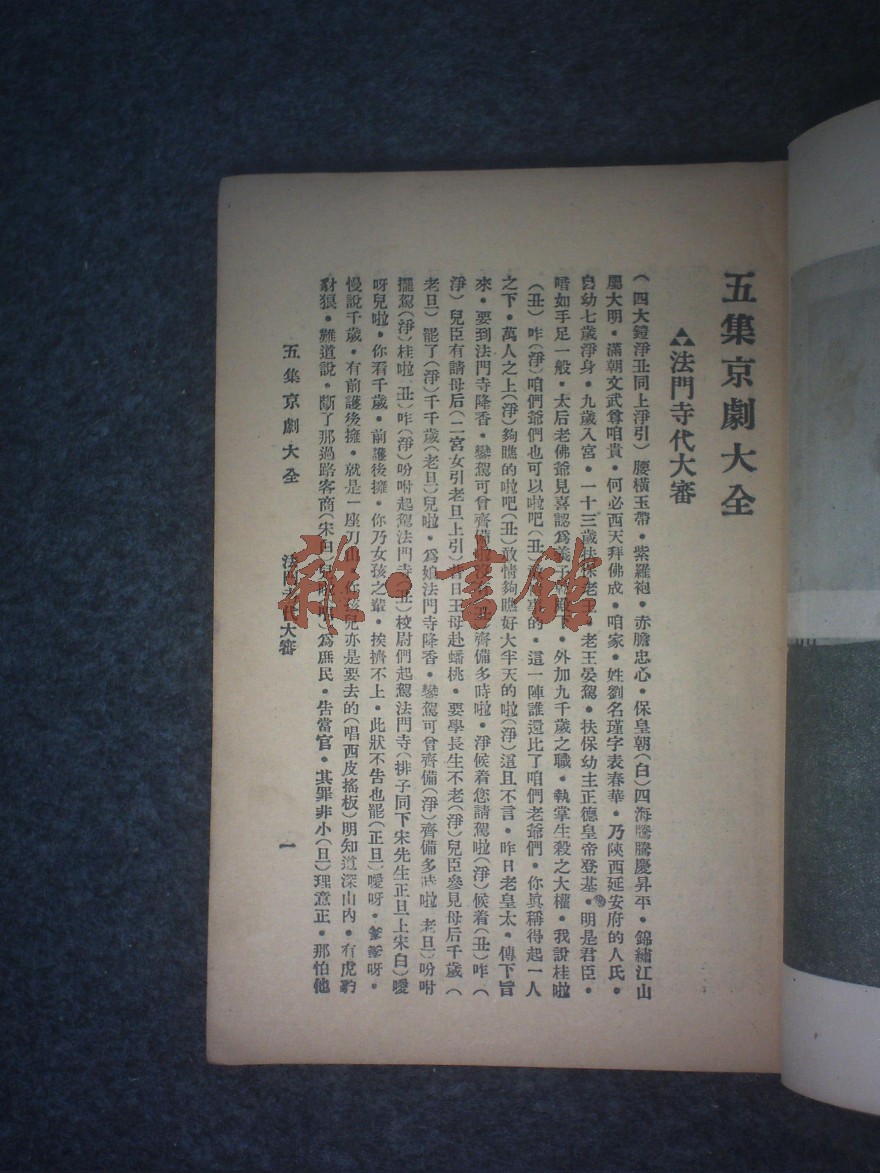 五集京劇大全
法門寺代大審
(四大鎧淨丑同上淨引)腰橫玉帶•紫羅袍•赤膽忠心•保皇朝(白)四海騰騰慶昇平•錦繡江山
屬大明•滿朝文武尊咱貴•何必西天拜佛成•咱家•姓劉名瑾字表春華•乃陝西延安府的人氏•
自幼七歲淨身•九歲入宮•一十三歲扶保老王•老王晏駕•扶保幼主正德皇帝登基•明是君臣•
暗如手足一般•太后老佛爺見喜認爲義子•外加九千歲之職•執掌生殺之大權•我說桂啦
(丑)咋(淨)咱們爺們也可以啦吧(丑)的•這一陣誰還比了咱們老爺們•你眞稱得起一人
之下•萬人之上(淨)夠瞧的啦吧(丑)敢情夠瞧好大半天的啦(淨)這且不言•昨日老皇太•傳下旨
來•要到法門寺降香•鑾駕可曾齊備齊備多時啦•淨候着您請駕啦(淨)候着(丑)咋(
淨)兒臣有請母后(二宮女引老旦上引)昔日王母赴蟠桃•要學長生不老(淨)兒臣參見母后千歲(
老旦)罷了(淨)千千歲(老旦)兒啦•爲娘法門寺降香•鑾駕可曾齊備(淨)齊備多時啦 老旦)吩咐
擺駕(淨)桂啦 丑)咋(淨)吩咐起駕法門寺(丑)校尉們起駕法門寺(排子同下宋先生正旦上宋白)噯
呀兒啦•你看千歲•前護後擁•你乃女孩之輩•挨擠不上•此狀不告也罷(正旦)噯呀•爹爹呀•
慢說千歲•有前護後擁•就是一座刀山•你孩兒亦是要去的(唱西皮搖板)明知道深山內•有虎豹
豺狼•難道說•斷了那過路客商(宋白)爲庶民•告當官•其罪非小(旦)理意正•那怕他
五集京劇大全
法門寺代大審
一
雜•書館